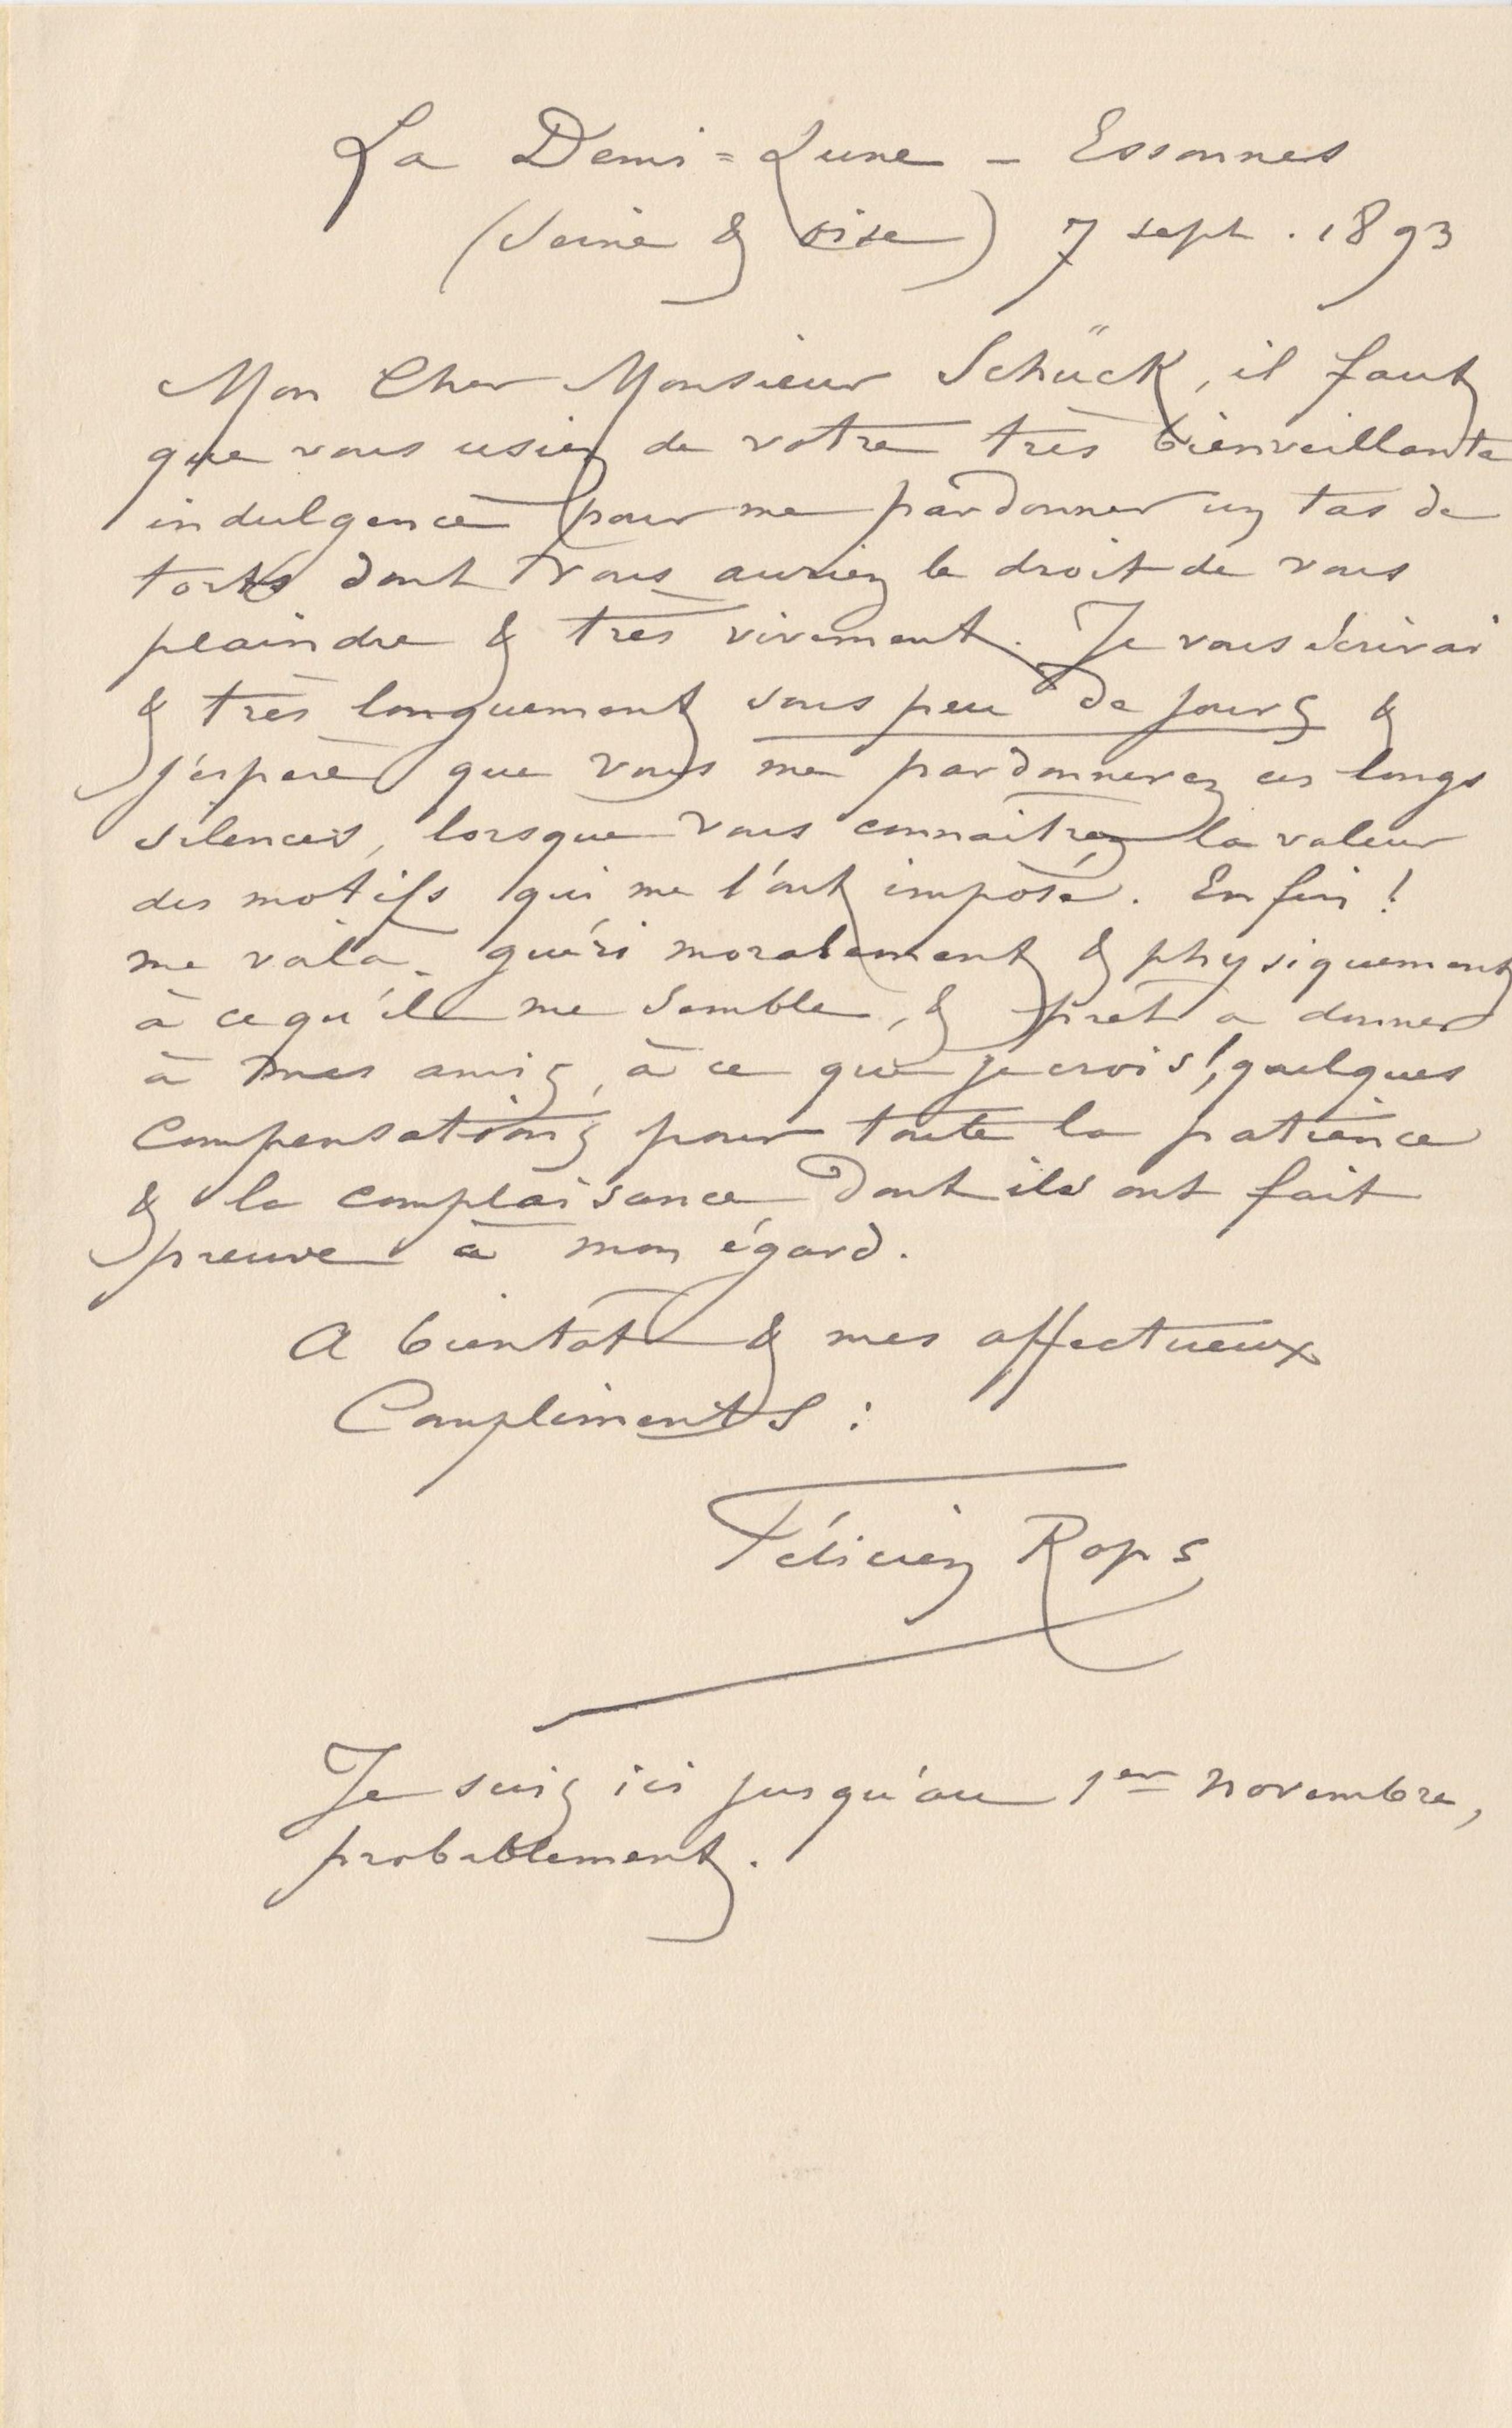 La Demi=Lune – Essonnes
(Seine & Oise) 7 sept. 1893
Mon Cher Monsieur Schück, il faut
que vous usiez de votre très bienveillante
indulgence pour me pardonner un tas de
torts dont vous auriez le droit de vous
plaindre & très vivement. Je vous écrirai
& très longuement sous peu de jours &
j'espère que vous me pardonnerez ces longs
silences, lorsque vous connaitrez la valeur
des motifs qui me l'ont imposé. Enfin !
me voilà guéri moralement & physiquement
à ce qu'il me semble, & prêt a donner
à mes amis, à ce que je crois !, quelques
compensations pour toute la patience
& la complaisance dont ils ont fait
preuve à mon égard.
A bientot & mes affectueux
Compliments :
Félicien Rops
Je suis ici jusqu'au 1er novembre,
probablement.